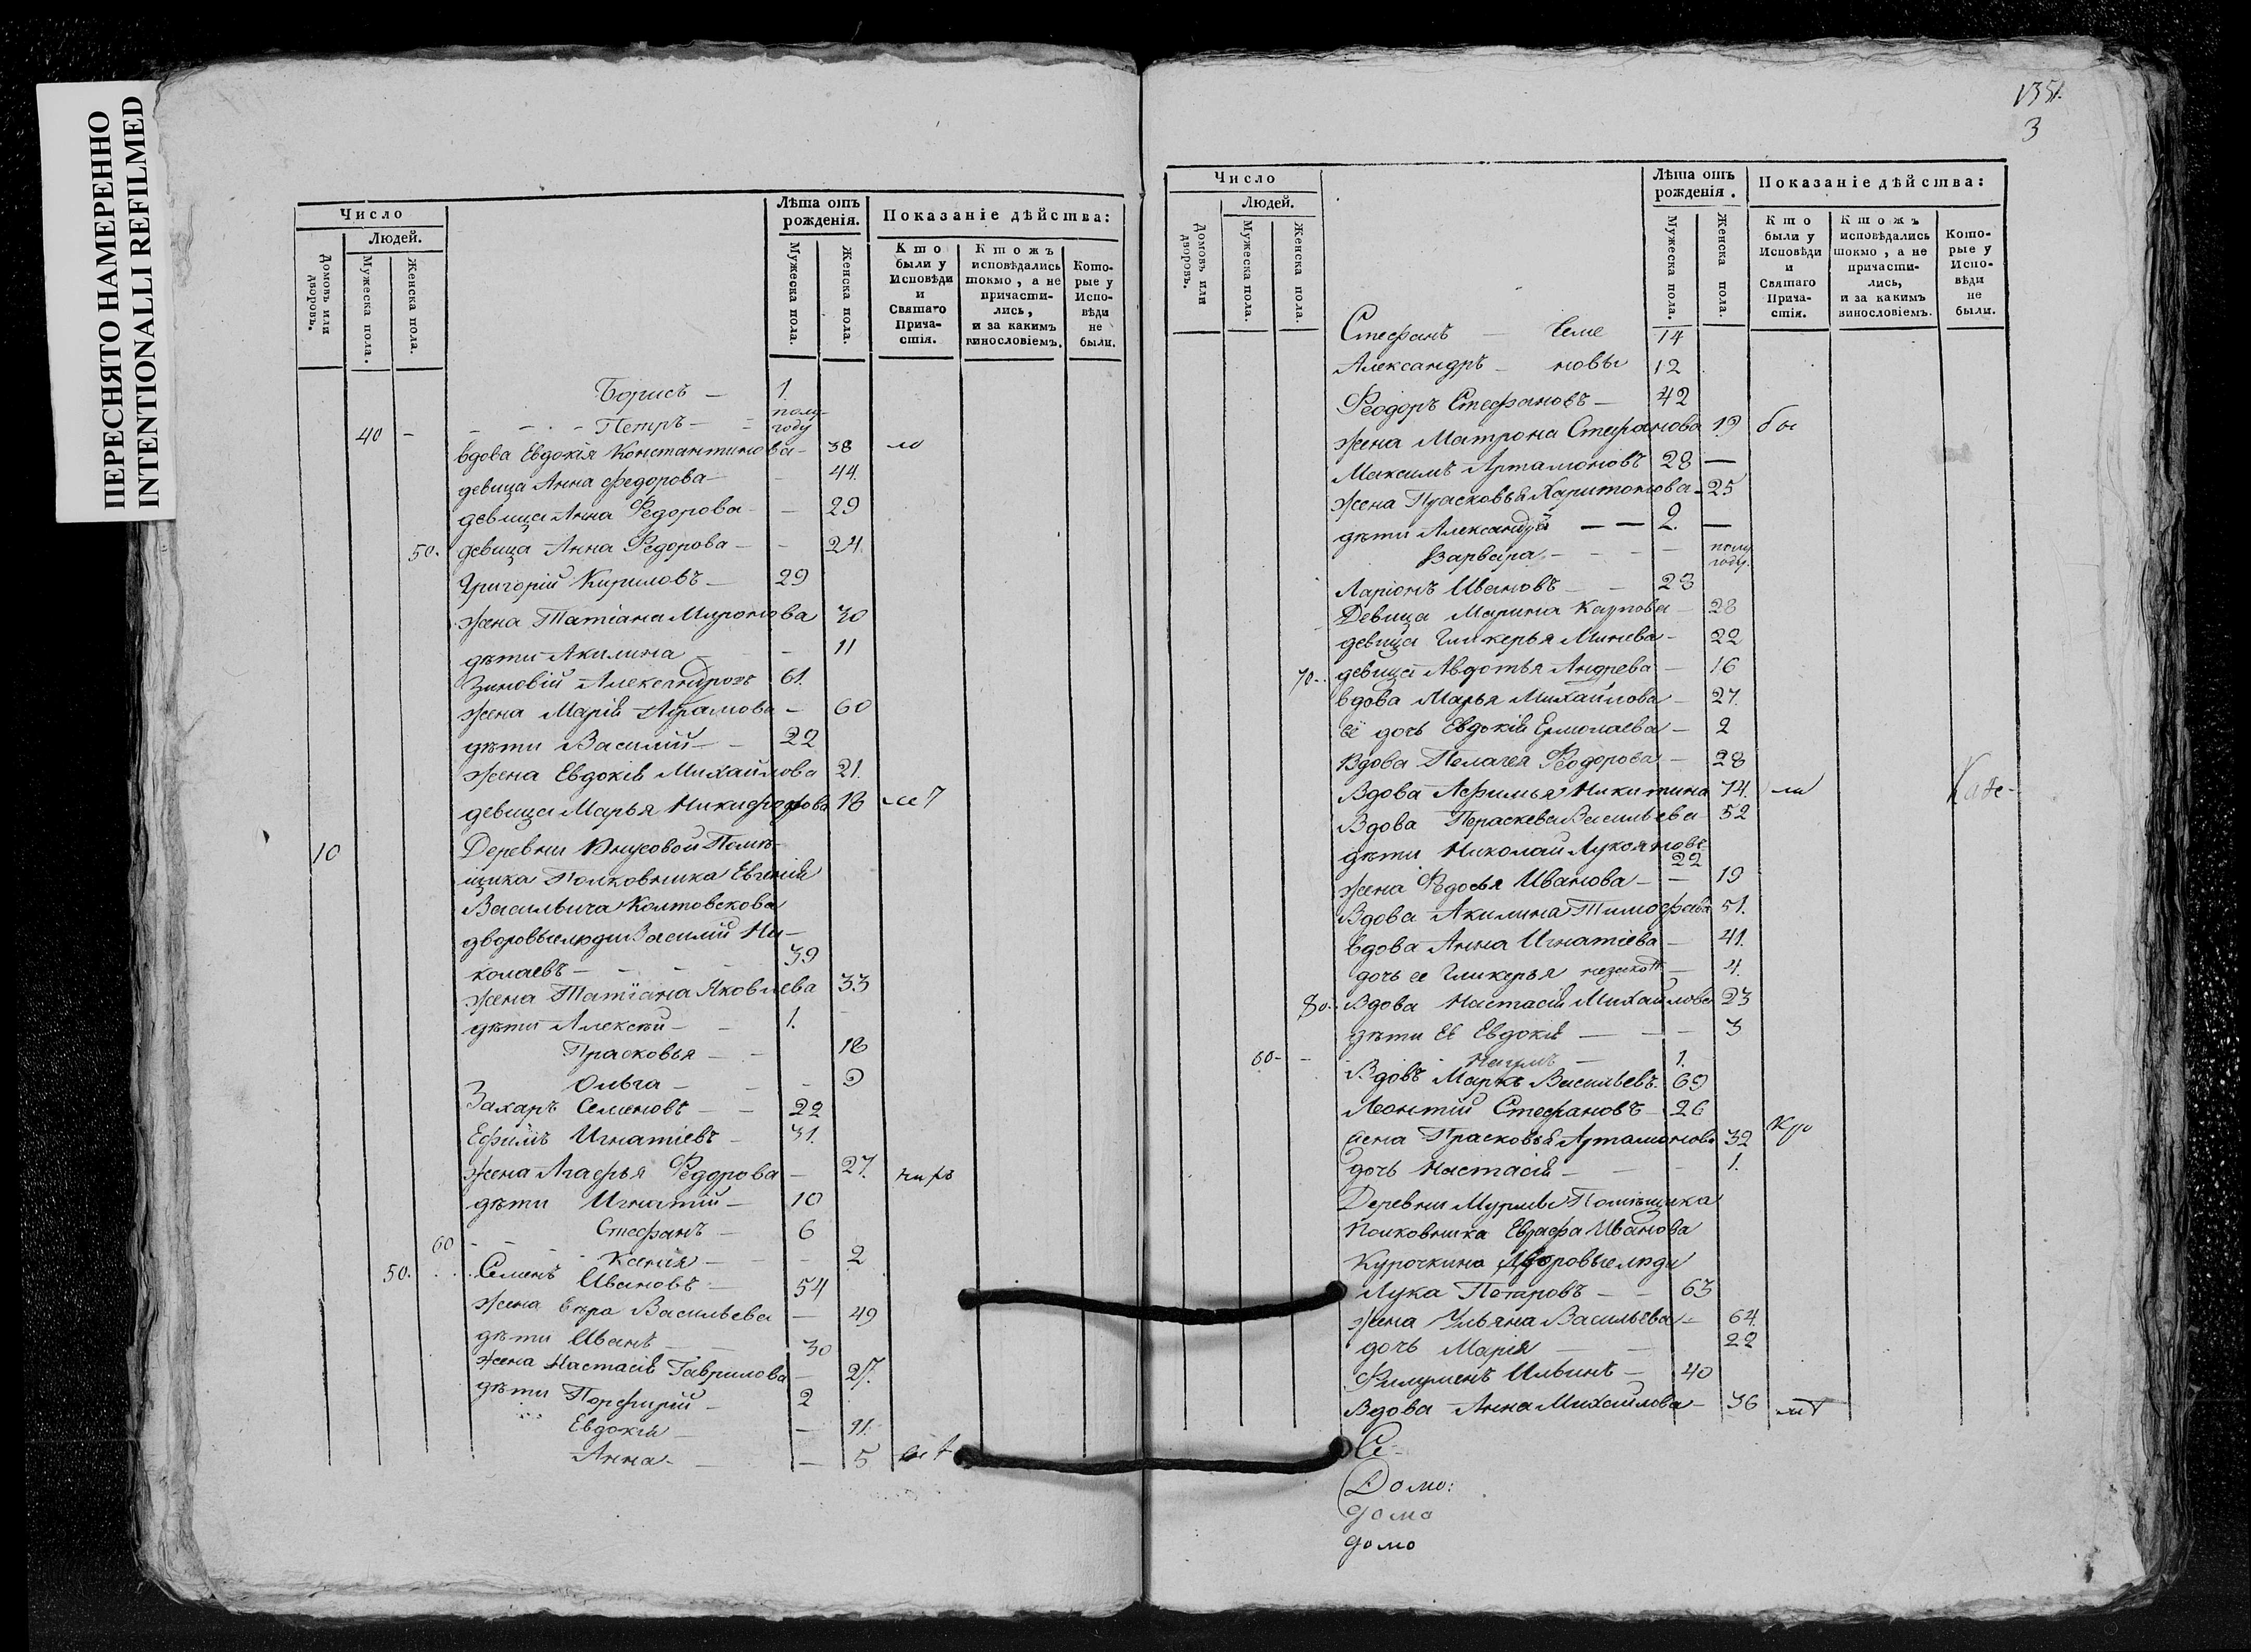 ПЕРЕСНЯТО НАМЕРЕННО
INTENTIONALLI REFILMED
Число
Людей.
Домовъ или дворовъ.
Мужеска пола.
Женска пола.
Лѣта отъ рожденія.
Мужеска пола.
Женска пола.
Показаніе дѣйства:
Кто были у Исповѣди и Святаго Причастія.
Ктожъ исповѣдались токмо, а не причастились, и за какимъ винословіемъ.
Которые у Исповѣди не были.
Борисъ — 1.
40 - Петръ — полу-году
вдова Евдокія Константинова - 38
девица Анна Федорова - 44.
девица Анна Федорова - 29
50. девица Анна Федорова - 24
Григорій Кириловъ — 29
жена Татіана Миронова 30
дѣти Акилина - 11
Зиновій Александровъ 61.
жена Марія Абрамова - 60
дѣти Василій - 22
жена Евдокія Михайлова 21.
девица Марья Никифорова 18
10 Деревни Помѣ-
щика Полковника Евгенія
Васильича Колтовскова
дворовые люди Василій Ни-
колаевъ - 39
жена Татіана Яковлева 33
дѣти Алексѣй - 1.
Прасковья - 18
Ольга - 9
Захаръ Семеновъ - 22
Ефимъ Игнатіевъ - 31.
жена Агафья Федорова - 27.
дѣти Игнатій - 10
Стефанъ - 6
60 - Ксенія - 2
50. Семенъ Ивановъ - 54
жена Вѣра Васильева - 49
дѣти Иванъ 30
жена Настасія Гаврилова - 27.
дѣти Порфирій - 2
Евдокія - 11.
Анна - 5
1351.
3
Число
Людей.
Домовъ или дворовъ.
Мужеска пола.
Женска пола.
Лѣта отъ рожденія.
Мужеска пола.
Женска пола.
Показаніе дѣйства:
Кто были у Исповѣди и Святаго Причастія.
Ктожъ исповѣдались токмо, а не причастились, и за какимъ винословіемъ.
Которые у Исповѣди не были.
Стефанъ - Семе 14
Александръ - новы 12
Феодоръ Стефановъ - 42
жена Матрона Стефанова 19 бы
Максимъ Артамоновъ 28 —
жена Прасковья Харитонова - 25
дѣти Александръ — — 2. —
Варвара - полу году.
Ларіонъ Ивановъ - 23
Девица Марина Карпова - 28
девица Гликерья Минева - 22
70. девица Авдотья Андрева - 16
вдова Марья Михайлова - 27.
её дочь Евдокія Ермолаева - 2
Вдова Пелагея Феодорова - 28
Вдова Афимья Никитина 74.
Вдова Параскева Васильева - 52
дѣти Николай Лукояновъ 22
жена Федосья Иванова - 19
Вдова Акилина Тимофева 51.
вдова Анна Игнатіева - 41.
дочь ее Гликерья - 4.
80. Вдова Настасія Михайлова 23
дѣти Её Евдокія - 3
60 - Наумъ - 1.
Вдовъ Марка Васильевъ. 69
Леонтій Стефановъ - 26
жена Прасковья Артамонова 32
дочь Настасія - 1.
Деревни Помѣщика
Полковника Ивановa
Курочкина Дворовые люди
Лука Петровъ - 63
жена Ульяна Васильева - 64.
дочь Марія 22
Филуменъ Ильинъ - 40
Вдова Анна Михайлова - 36
Домо:
домо
домо